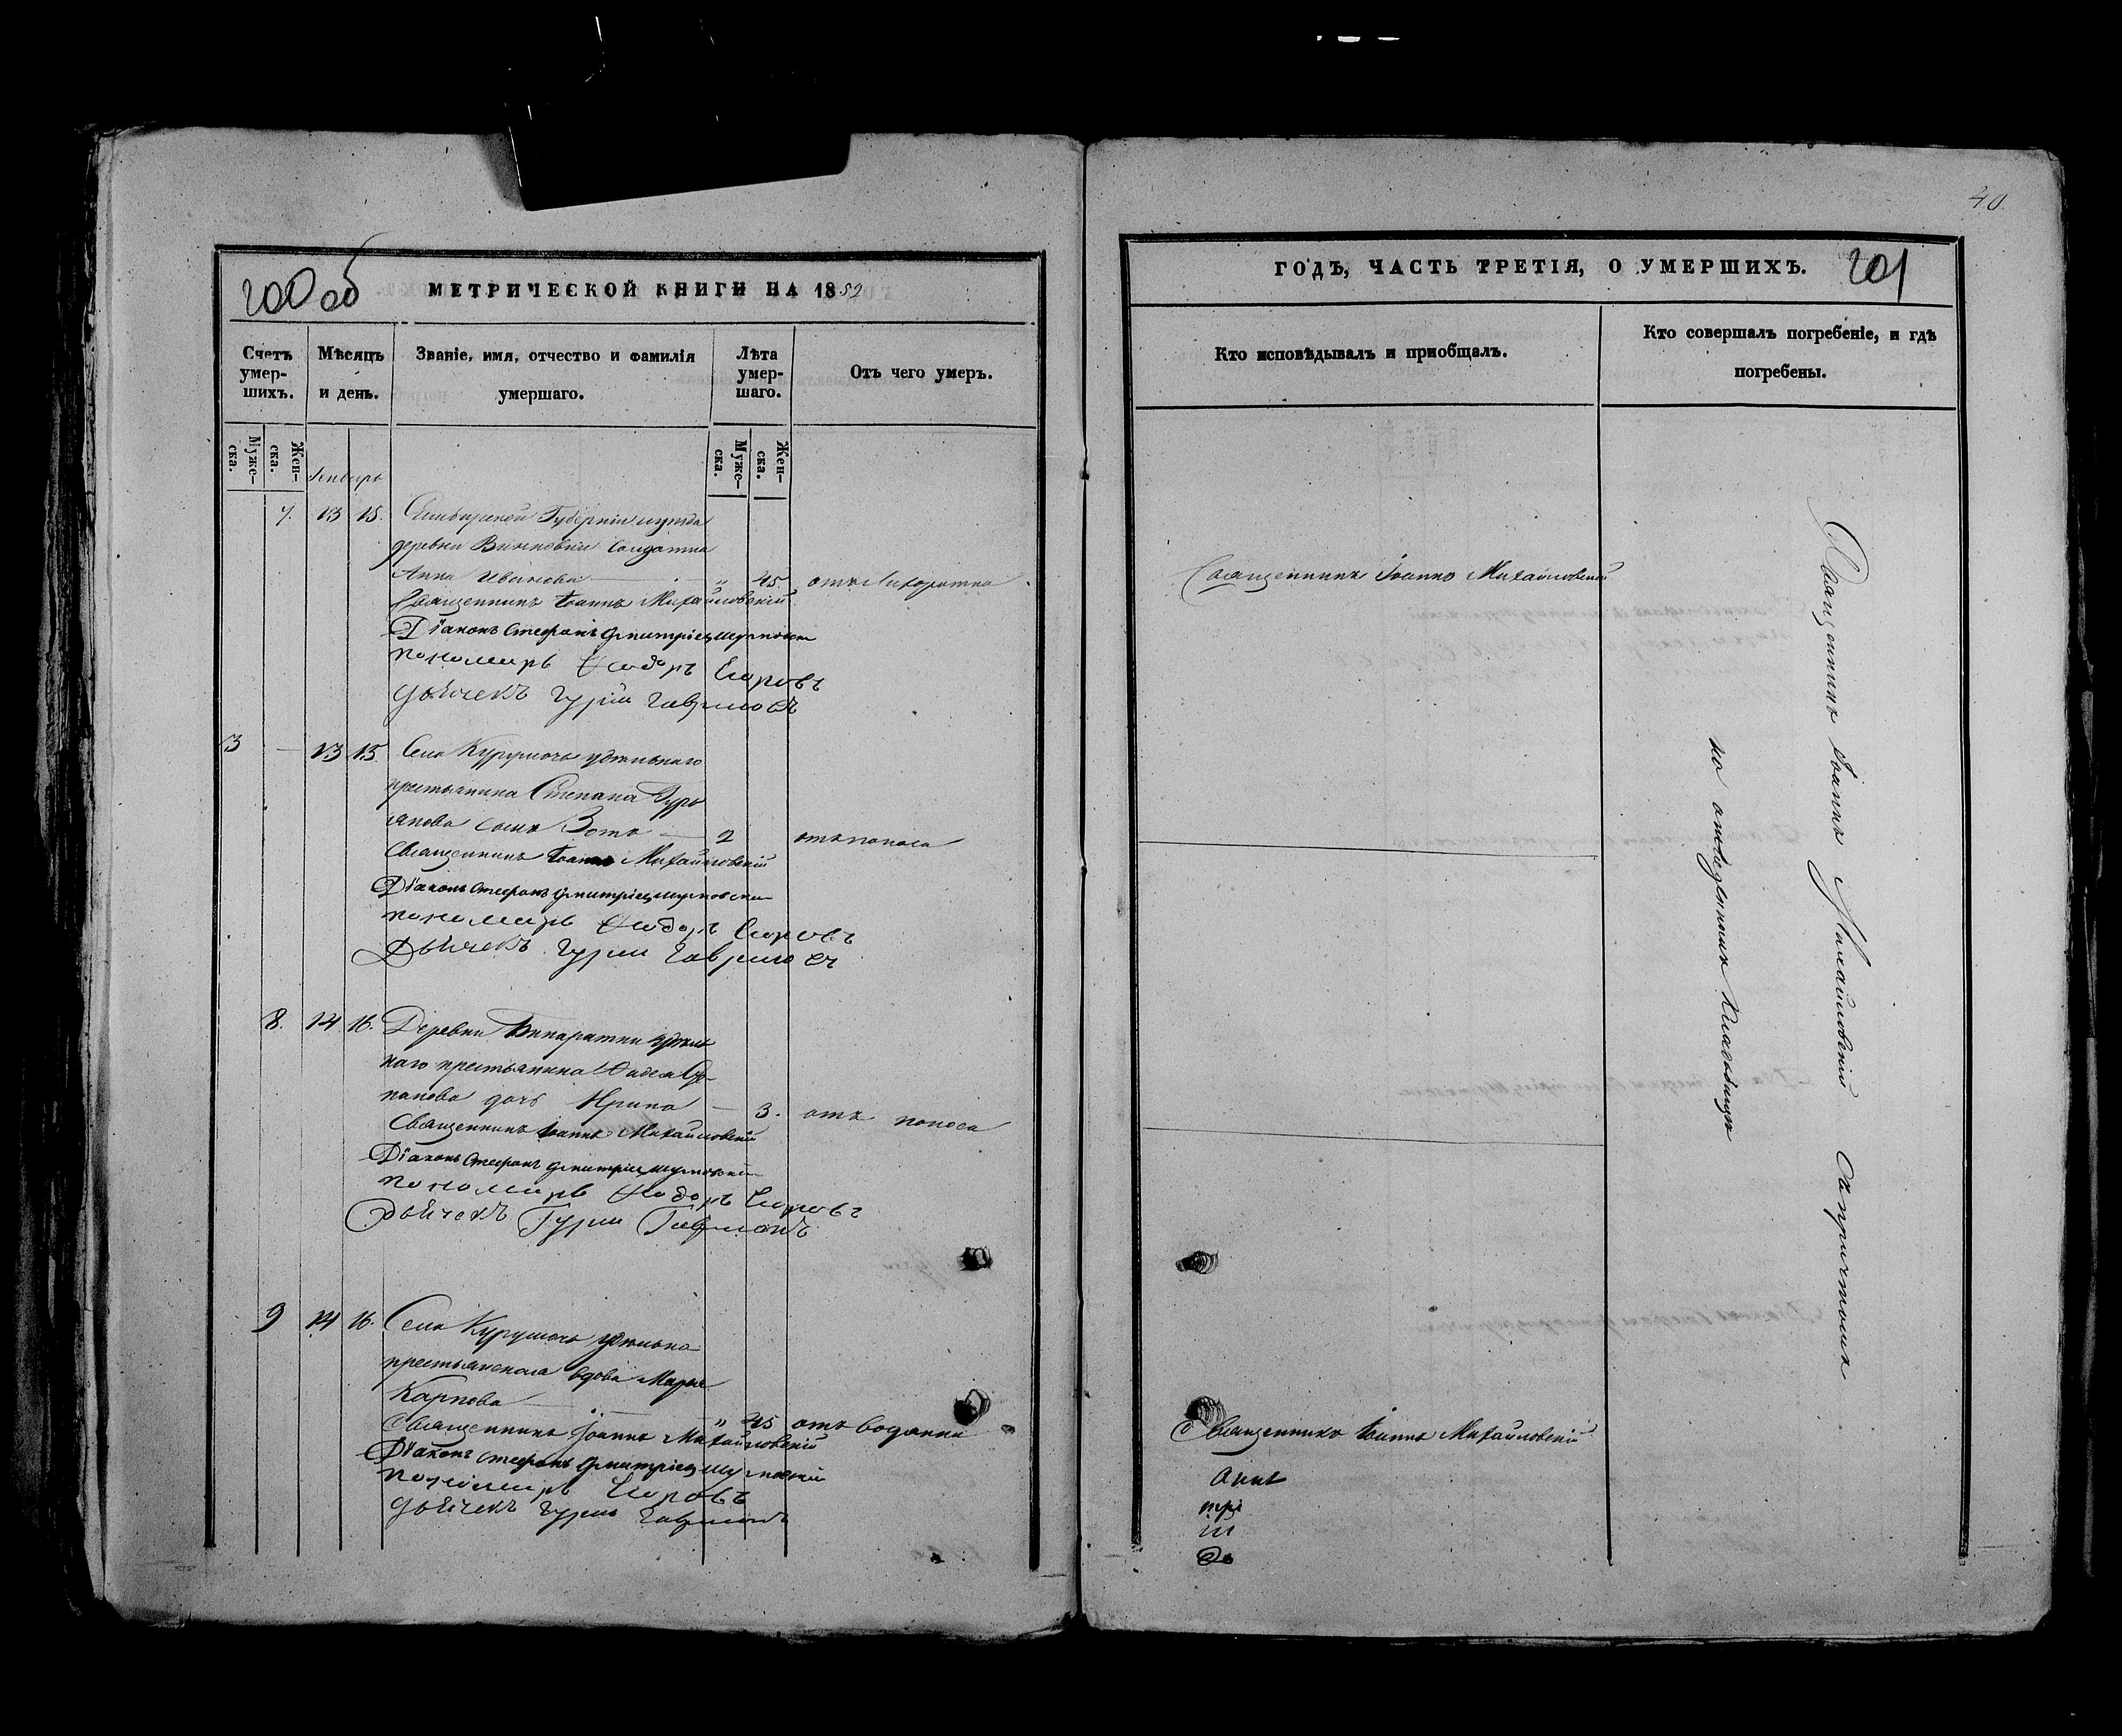 200 об
МЕТРИЧЕСКОЙ КНИГИ НА 1852
Счетъ умер-шихъ.
Мѣсяцъ и день.
Званіе, имя, отчество и фамилія умершаго.
Лѣта умер-шаго.
Отъ чего умеръ.
Муже-ска.
Жен-ска.
Январь
Муже-ска.
Жен-ска.
7. 13 15. Симбирской Губерніи уѣзда
деревни солдатка
Анна Иванова — " 45 отъ лихорадки
Священникъ Іоаннъ Михайловскій
Діаконъ Стефанъ Дмитріев
пономарь Ѳеодоръ Егоровъ
дьячекъ Гурій Гавриловъ
3 — 13 15. Села Курумоча удѣльнаго
крестьянина Степана Гурь
янова сынъ Зотъ — 2 отъ поноса
Священникъ Іоаннъ Михайловскій
Діаконъ Стефанъ Дмитріев
пономарь Ѳеодоръ Егоровъ
Дьячекъ Гурій Гавриловъ
8. 14 16. Деревни удѣль
наго крестьянина
дочь Ирина — 3. отъ поноса
Священникъ Іоаннъ Михайловскій
Діаконъ Стефанъ Дмитріев
пономарь Ѳеодоръ Егоровъ
Дьячекъ Гурій Гавриловъ
9 14 16. Села Курумоча удѣльно
крестьянская вдова Марья
Карпова — " 45 отъ водянки
Священникъ Іоаннъ Михайловскій
Діаконъ Стефанъ Дмитріев
пономарь Егоровъ
дьячекъ Гурій Гавриловъ
40
ГОДЪ, ЧАСТЬ ТРЕТІЯ, О УМЕРШИХЪ.
201
Кто исповѣдывалъ и пріобщалъ.
Кто совершалъ погребеніе, и гдѣ погребены.
Священникъ Іоаннъ Михайловскій
Священникъ Іоаннъ Михайловскій
Священникъ Іоаннъ Михайловскій съ причтомъ
на отведенномъ кладбищѣ